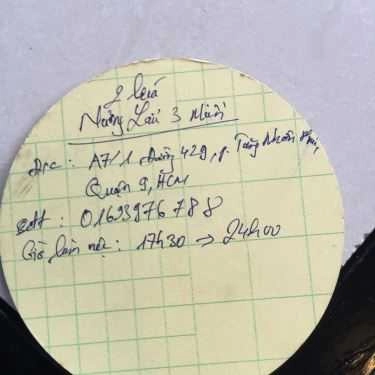 2 lẩu
Nướng Lẩu 3 Miền
Đ/c : A7/1, Đường 429, p. Tăng Nhơn Phú,
Quận 9, HCM
sđt : 01693976788
Giờ làm việc : 17h30 → 24h00